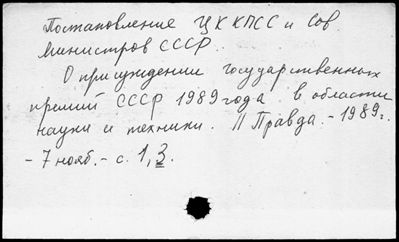 Постановление ЦК КПСС и Сов.
Министров СССР.
О присуждении государственных
премий СССР 1989 года в области
науки и техники. // Правда. - 1989г.
- 7 нояб. - с. 1, 3.